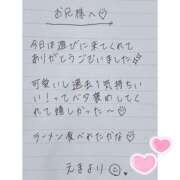 お兄様へ♡
今日は遊びに来てくれて
ありがとうございました
可愛いし過去1気持ちい
い!ってベタ褒めしてく
れて嬉しかった〜
ラーメン食べれたかな♡
えまより☺